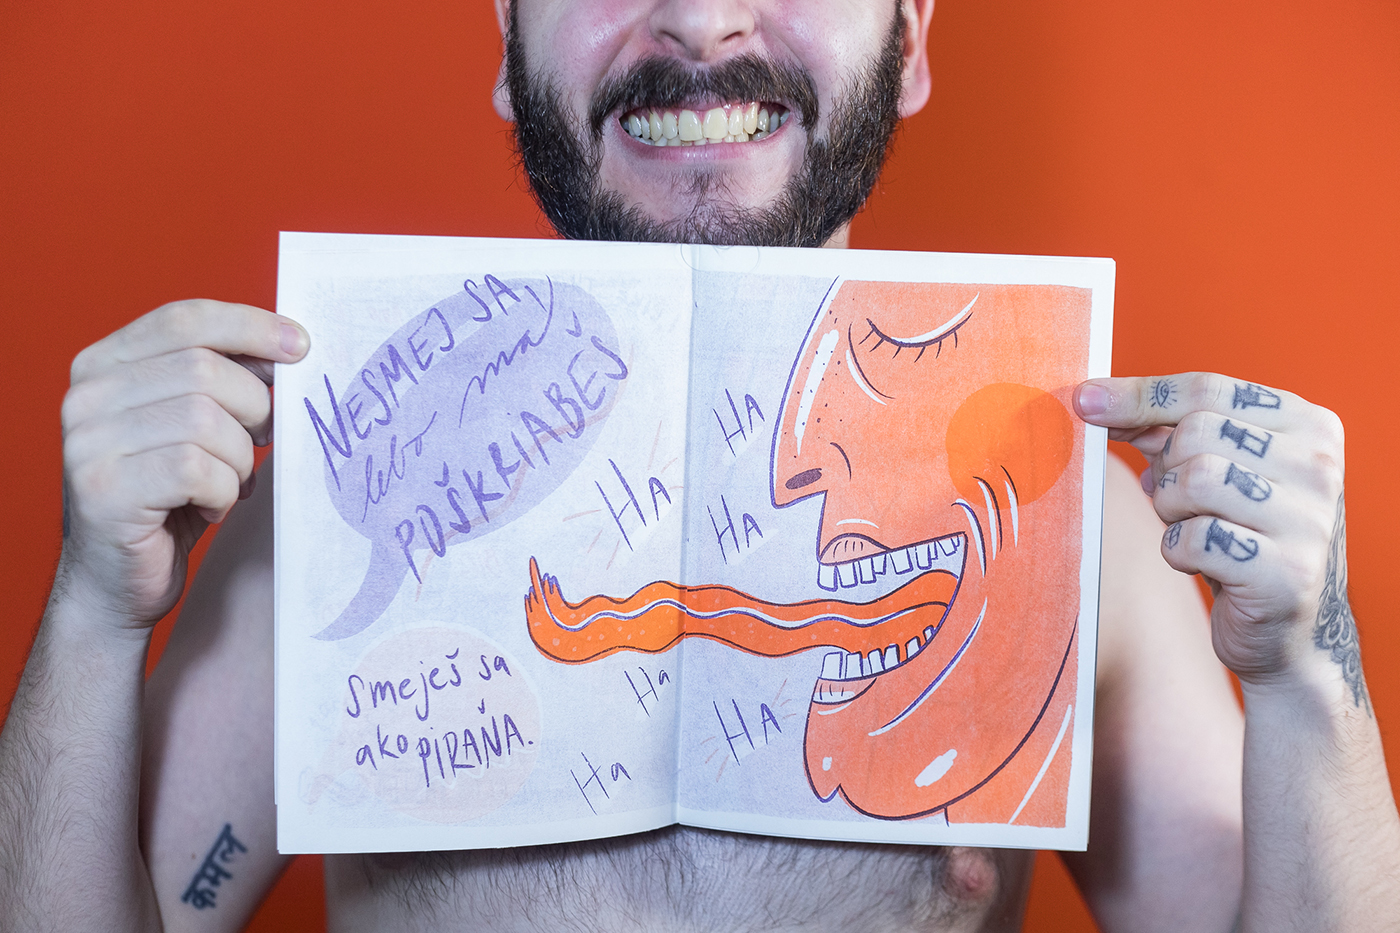 NESMEJ SA,
lebo ma
POŠKRIABEŠ
HA
HA
HA
Smeješ sa
ako PIRAŇA.
Ha
HA
Ha
कमल